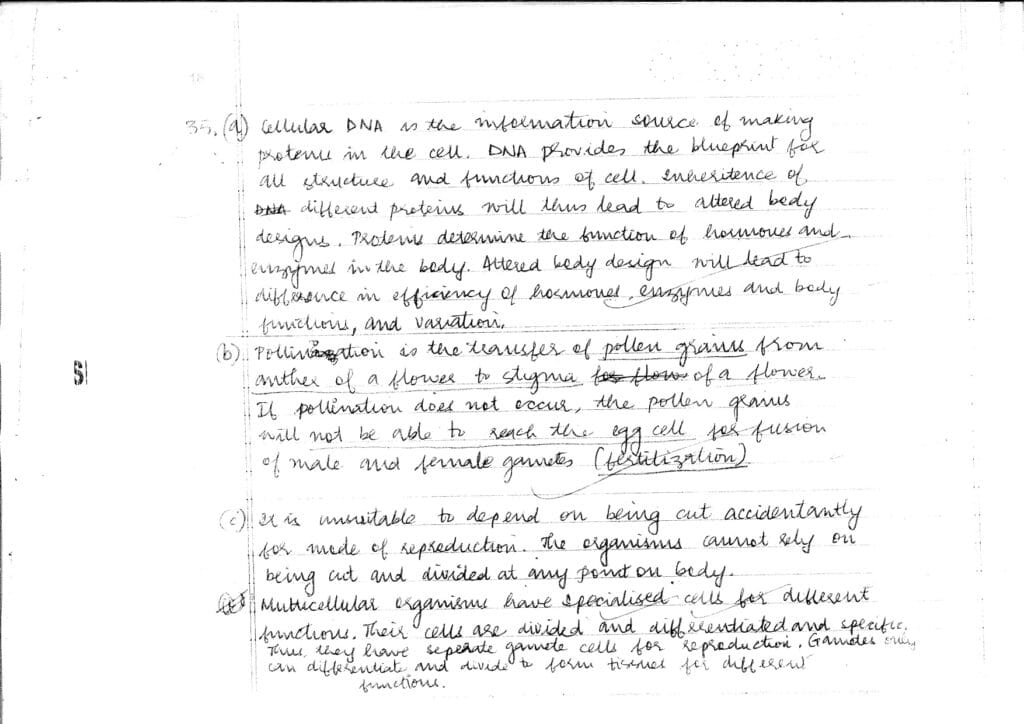 18
35. (a) Cellular DNA is the information source of making
proteins in the cell. DNA provides the blueprint for
all structure and functions of cell. Inheritence of
DNA different proteins will thus lead to altered body
designs. Proteins determine the function of hormones and
enzymes in the body. Altered body design will lead to
difference in efficiency of hormones, enzymes and body
functions, and variation.
(b) Pollination is the transfer of pollen grains from
anther of a flower to stigma for flow of a flower.
If pollination does not occur, the pollen grains
will not be able to reach the egg cell for fusion
of male and female gametes (fertilization)
(c) It is unsuitable to depend on being cut accidentantly
for mode of reproduction. The organisms cannot rely on
being cut and divided at any point on body.
Multicellular organisms have specialised cells for different
functions. Their cells are divided and differentiated and specific.
Thus, they have seperate gamete cells for reproduction. Gametes only
can differentiate and divide to form tissues for different
functions.